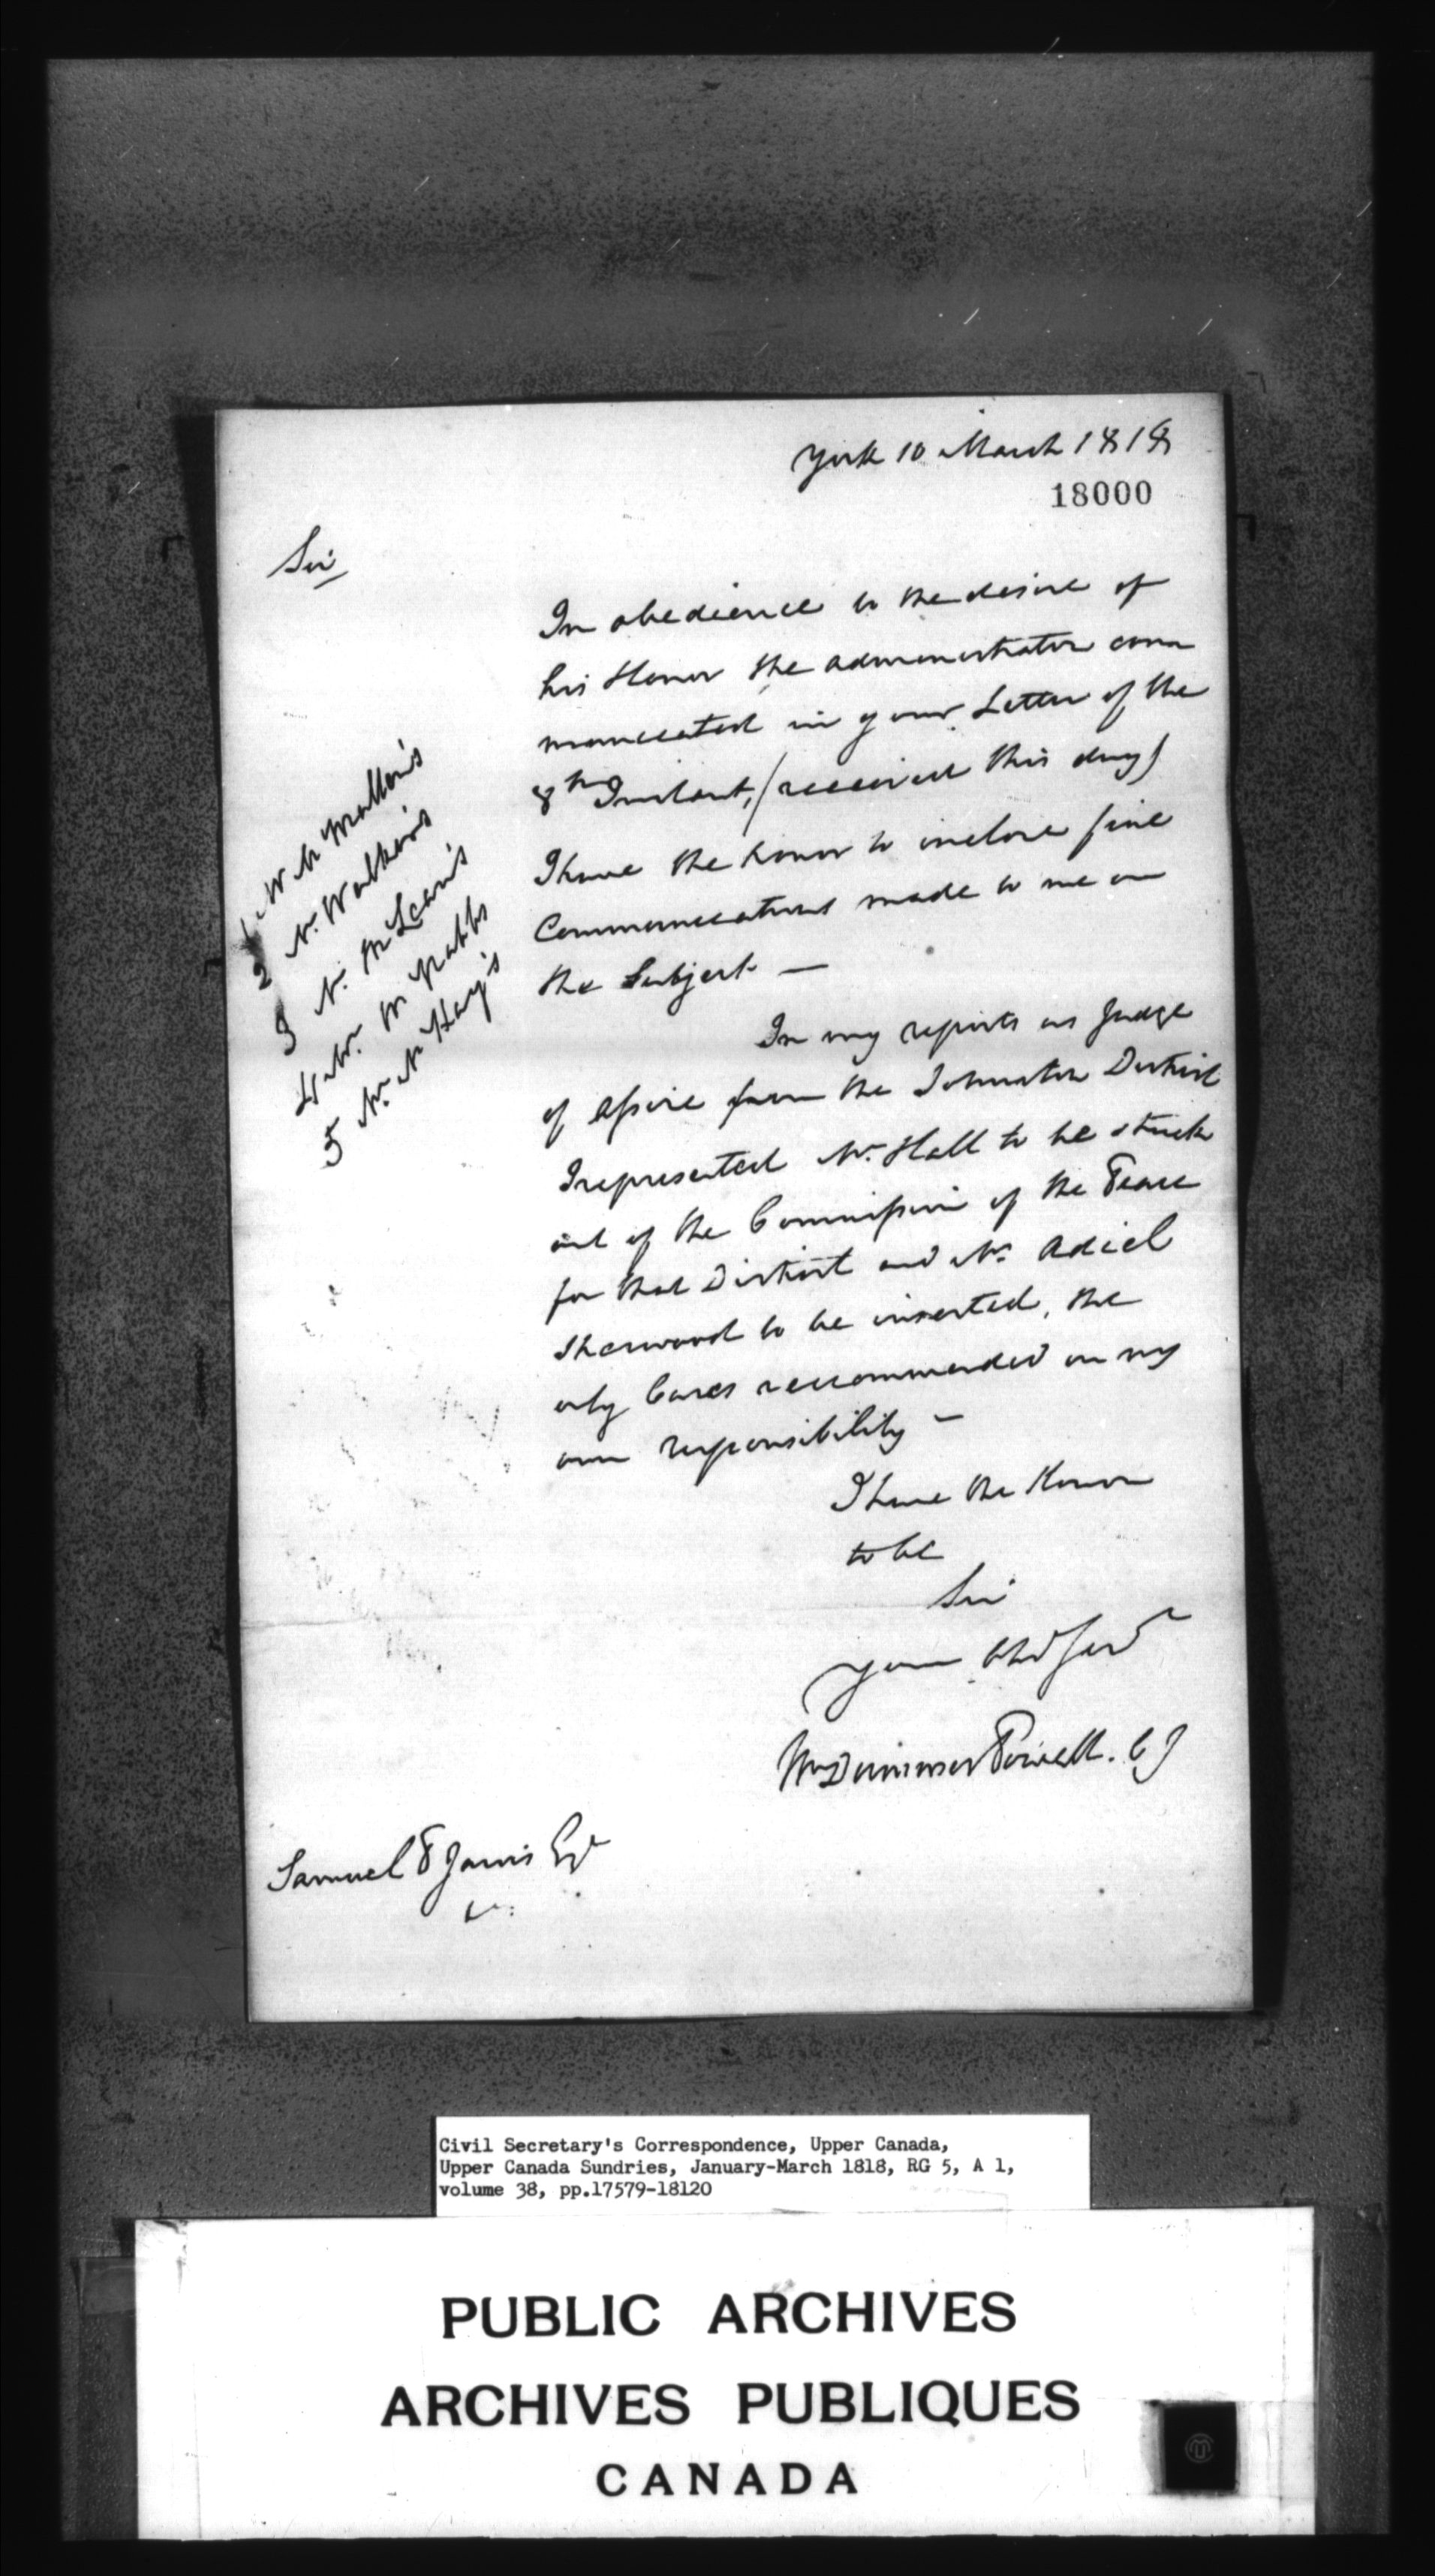 York 10 March 1818
18000
Sir
In obedience to the desire of
his Honor the administrator com
municated in your Letter of the
8th Instant, (received this day)
I have the honor to inclose five
Communications made to me on
the Subject —
1
2 Mr Walker's
3 Mr. McLean's
4 Mr.
5 Mr Hay's
In my reports as Judge
of Assize from the Johnston District
I represented Mr. Hall to be struck
out of the Commission of the Peace
for that District and Mr. Adiel
Sherwood to be inserted, the
only Cases recommended on my
own responsibility —
I have the Honor
to be
Sir
Your Obd Servt
Wm Dummer Powell. CJ
Samuel P Jarvis Esqr
Civil Secretary's Correspondence, Upper Canada,
Upper Canada Sundries, January-March 1818, RG 5, A 1,
volume 38, pp.17579-18120
PUBLIC ARCHIVES
ARCHIVES PUBLIQUES
CANADA